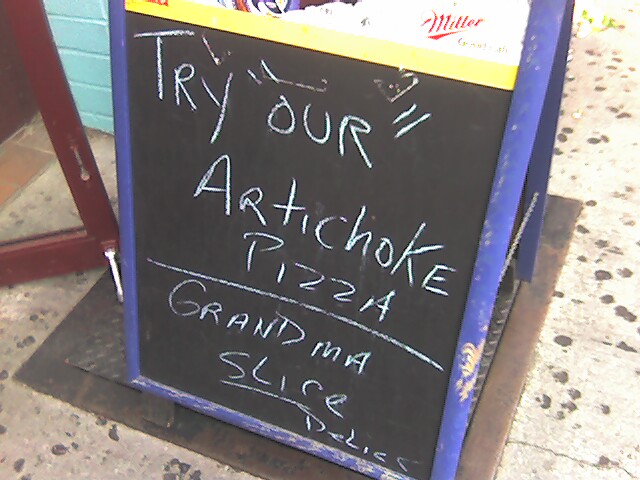 Miller
TRY OUR "
ARTICHOKE
PIZZA
GRANDMA
SLICE